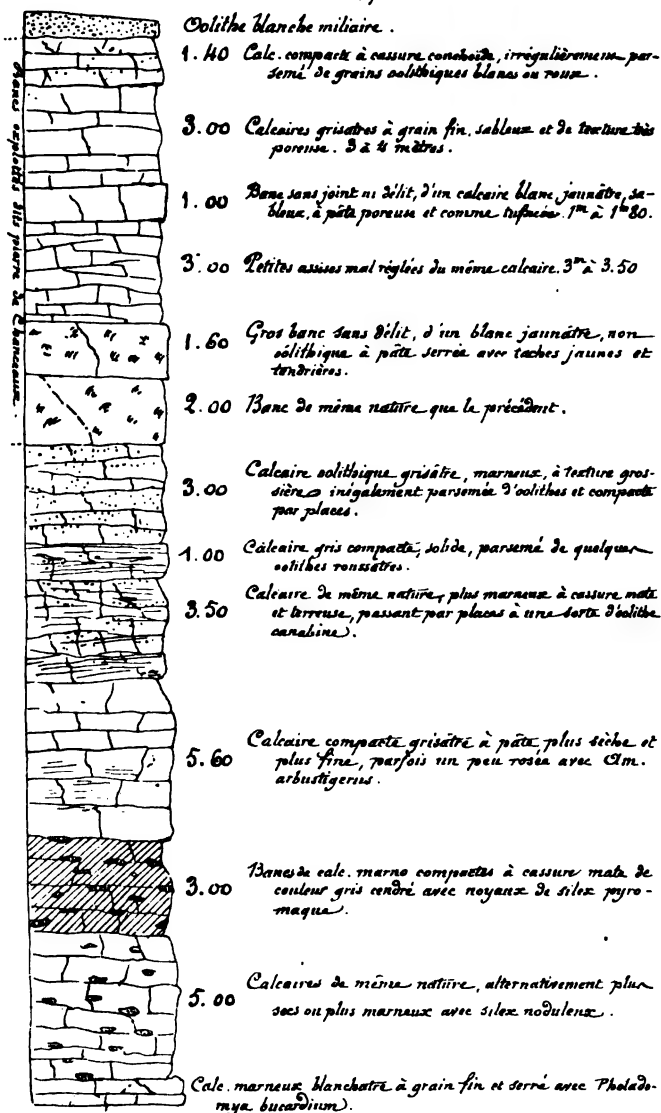 Oolithe blanche miliaire.
1.40 Calc. compacte à cassure conchoïde, irrégulièrement par-
semé de grains oolithiques blancs ou roux.
3.00 Calcaires grisâtres à grain fin, sableux et de texture très
poreuse. 3 à 4 mètres.
1.00 Banc sans joint ni délit, d'un calcaire blanc jaunâtre, sa-
bleux, à pâte poreuse et comme tufacée. 1m à 1m80.
3.00 Petites assises mal réglées du même calcaire. 3m à 3.50
1.60 Gros banc sans délit, d'un blanc jaunâtre, non
oolithique à pâte serrée avec taches jaunes et
tendrières.
2.00 Banc de même nature que le précédent.
3.00 Calcaire oolithique grisâtre, marneux, à texture gros-
sière inégalement parsemée d'oolithes et compacte
par places.
1.00 Calcaire gris compacte, solide, parsemé de quelques
oolithes roussâtres.
3.50 Calcaire de même nature, plus marneux à cassure mate
et terreuse, passant par places à une sorte d'oolithe
canabine.
5.60 Calcaire compacte grisâtre à pâte plus sèche et
plus fine, parfois un peu rosée avec Am.
arbustigerus.
3.00 Bancs de calc. marno compactes à cassure mate de
couleur gris cendré avec noyaux de silex pyro-
maque.
5.00 Calcaires de même nature, alternativement plus
secs ou plus marneux avec silex noduleux.
Calc. marneux blanchâtre à grain fin et serré avec Pholado-
mya bucardium.
Bancs exploités dits pierre de Chanceaux.